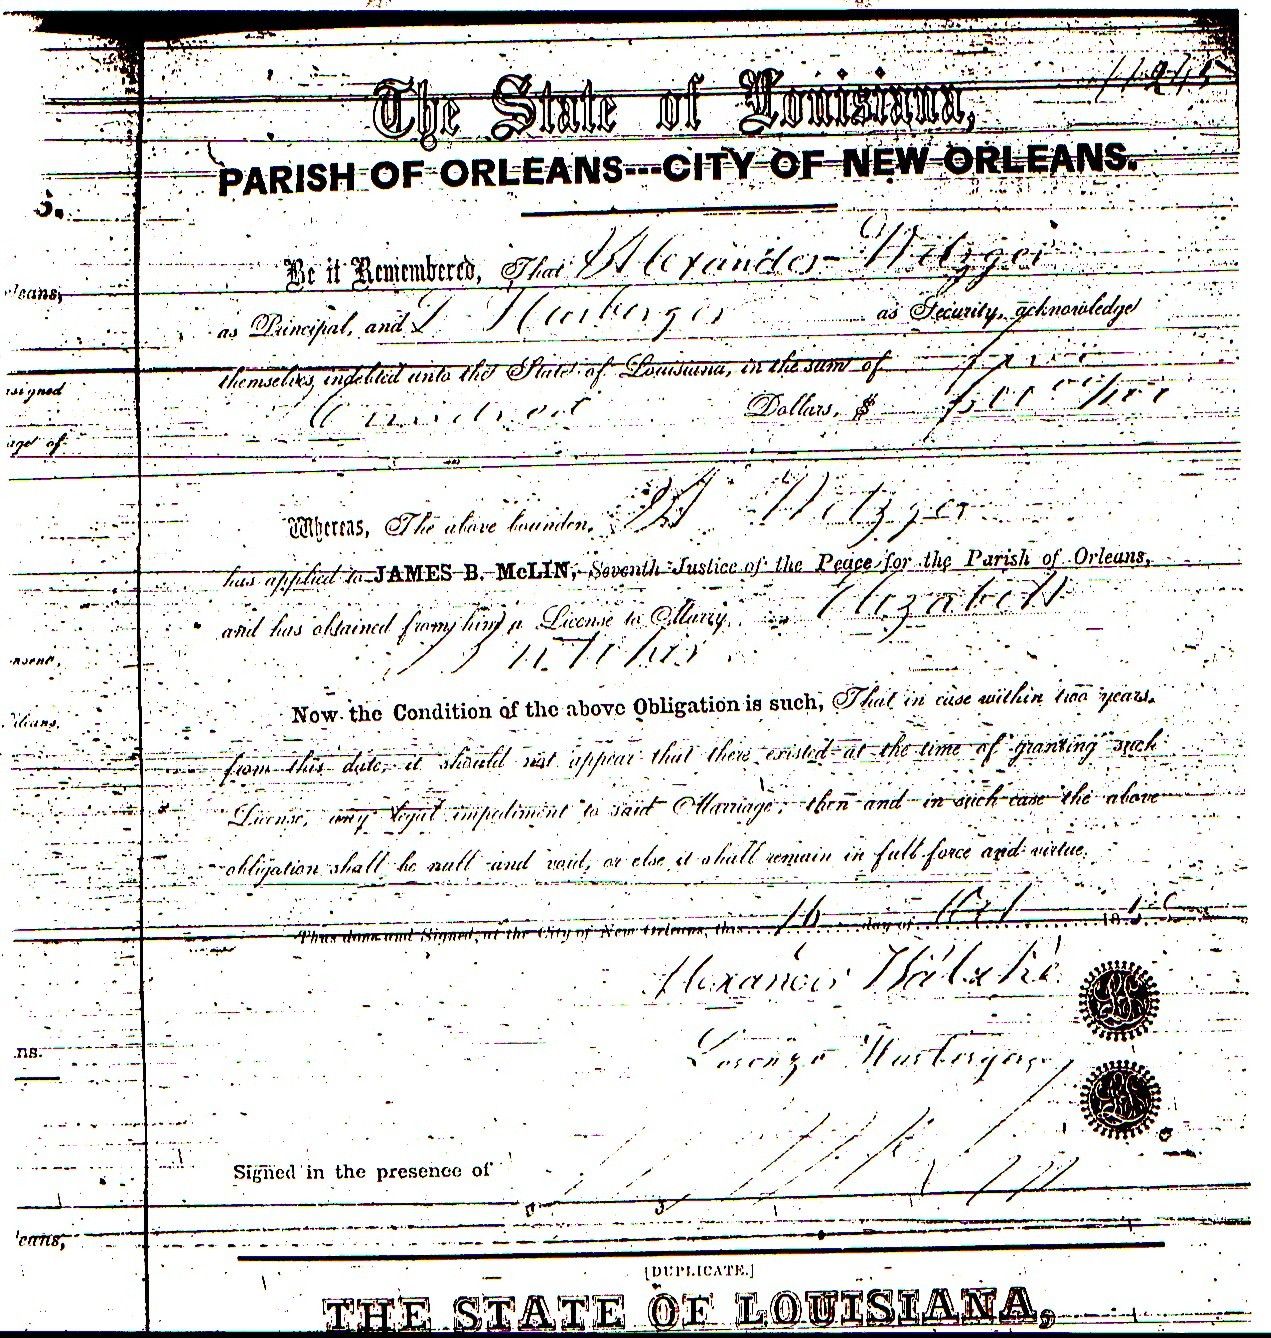 The State of Louisiana,
PARISH OF ORLEANS---CITY OF NEW ORLEANS.
s.
Be it Remembered, That Alexander
rleans,
as Principal, and as Security, acknowledge
themselves indebted unto the State of Louisiana, in the sum of five
rsigned
hundred Dollars, $ 500
age of
Whereas, The above bounden,
has applied to JAMES B. McLIN, Seventh Justice of the Peace for the Parish of Orleans,
and has obtained from him a License to Marry Elizabeth
nsent,
Now the Condition of the above Obligation is such, That in case within two years
rleans,
from this date, it should not appear that there existed at the time of granting such
License, any legal impediment to said Marriage, then and in such case the above
obligation shall be null and void, or else it shall remain in full force and virtue.
Thus done and Signed, at the City of New Orleans, this 16 day of Oct 18
Alexander
ns.
Lorenzo
Signed in the presence of
leans,
[DUPLICATE.]
THE STATE OF LOUISIANA,